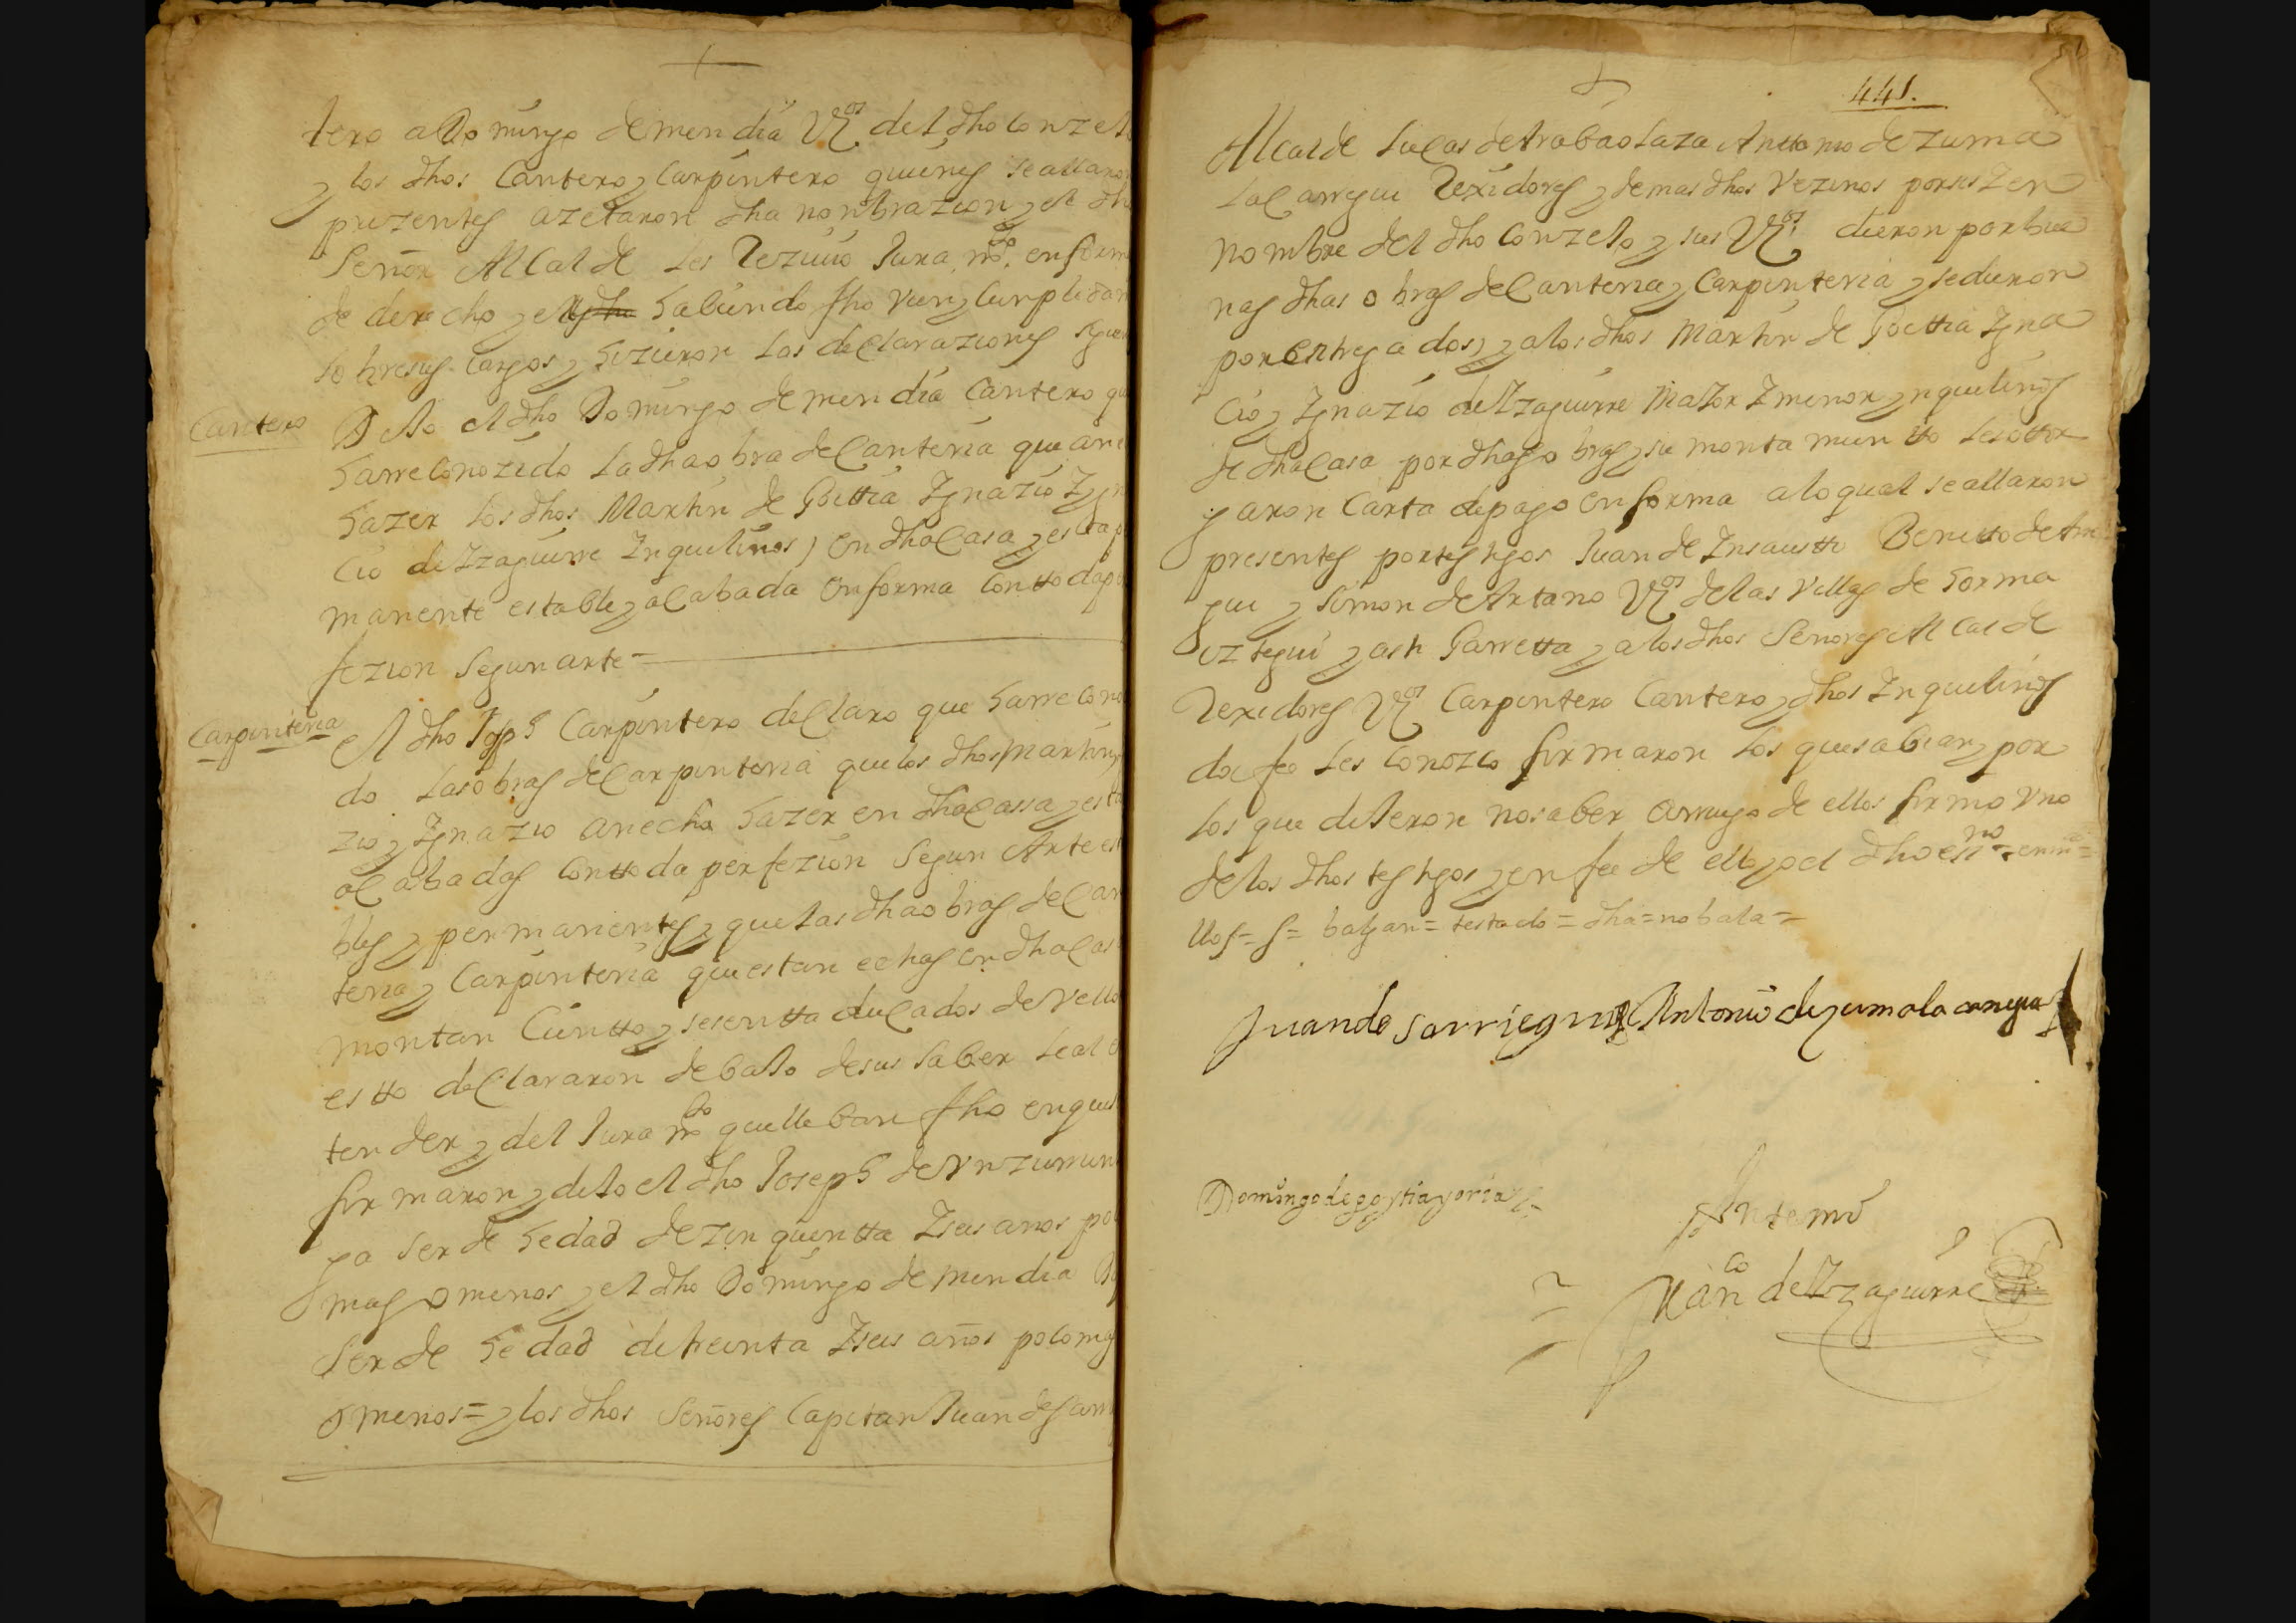 tero a Domingo de mendia Vº del dho conzeJo
y los dhos Cantero y Carpintero quienes se allaron
prezentes azetaron dha nonbrazion y el dho
Señor AlCalde les Rezivio Jura mto en form
de derecho y ellos dha haviendo fho vien y cunplidam
sobre sus cargos hizieron las declaraziones siguien
Cantero
DiJo el dho Domingo de mendia Cantero que
ha rreConozido la dha obra de Canteria que an e
hazer los dhos Martin de Goittia Ygnazio Y Ygn
cio de Yzaguirre Ynquilinos, en dha Casa y esta p
manente estable y aCabada en forma con ttoda per
fezion Segun arte =
Carpinteria
El dho Joph Carpintero deClaro que ha rreCono
do las obras de Carpinteria que los dhos Martin y
zio y Ygnazio an echo hazer en dha Cassa y esta
aCabadas con ttoda perfezion Segun Arte es
bles y permanentes y que las dha obras de Can
teria y Carpinteria que estan echas en dha Cas
montan Cientto y sesentta duCados de vello
estto deClararon debaJo de su saber leal
tender y del Jura mto que lleban fho en que
firmaron y diJo el dho Joseph de Vnzurrun
ga ser de hedad de zinquentta Y seis anos po
mas o menos y el dho Domingo de mendia
Ser de hedad de treinta Y seis años poCo ma
o menos = y los dhos Señores Capitan Juan de Sarri
441.
Alcalde Lucas de Arabaolaza Antonio de Zuma
laCarregui Rexidores y demas dhos Vezinos por si y en
nombre del dho ConzeJo y sus Vos dieron por bue
nas dhas obras de Canteria y Carpinteria y se dieron
por entregados, y a los dhos Martin de Goittia Ygna
cio y Ygnazio de Yzaguirre MaJor Y menor ynquilinos
de dha Casa por dhas obras y su monta mientto les ottor
garon Carta de pago en forma a lo qual se allaron
presentes por testigos Juan de Ynsaustti Benitto de Am
gui y Simon de Artano Vos de las Villas de horma
iztegui y asti Garretta y a los dhos Señores AlCalde
Rexidores Vos Carpintero Cantero y dhos Ynquilinos
doi fee les Conozco firmaron los que sabian y por
los que diJeron no saber a rruego de ellos firmo vno
de los dhos testigos y en fee de ello yo el dho essno = enm =
llos = s = balgan = testado = dha = no bala =
Juan de Sarriegui Antonio de zumalacarregui
Domingo de egostiazoria
Antemi
Franco de Yzaguirre